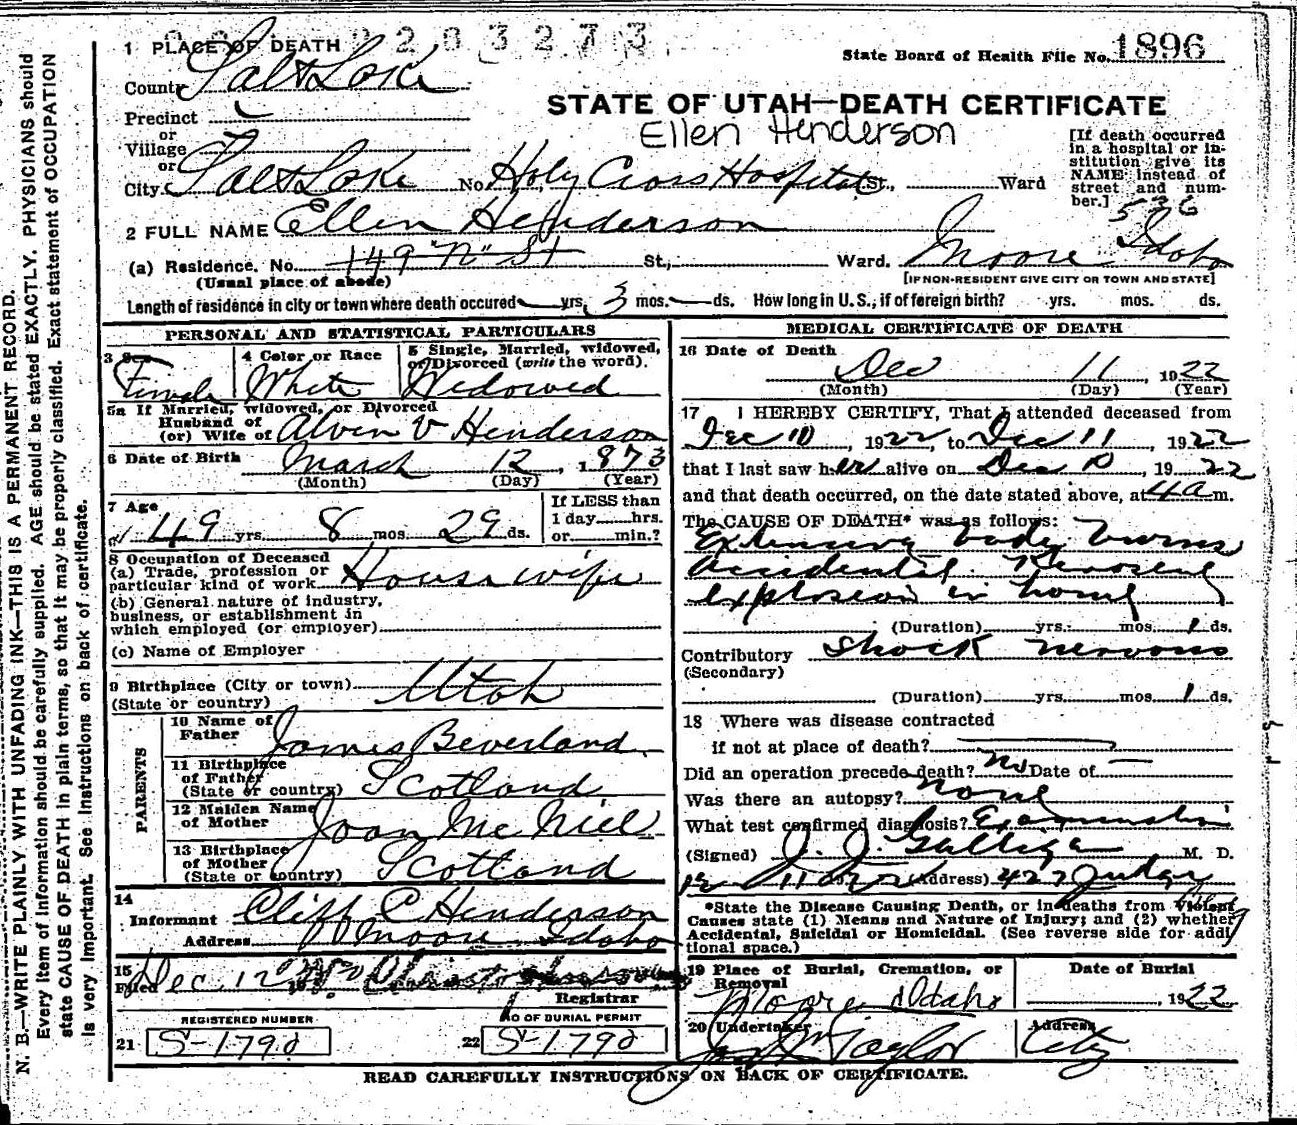 N. B.—WRITE PLAINLY WITH UNFADING INK—THIS IS A PERMANENT RECORD.
Every item of information should be carefully supplied. AGE should be stated EXACTLY. PHYSICIANS should
state CAUSE OF DEATH in plain terms, so that it may be properly classified. Exact statement of OCCUPATION
is very important. See instructions on back of certificate.
1 PLACE OF DEATH
State Board of Health File No. 1896
County Salt Lake
STATE OF UTAH—DEATH CERTIFICATE
Ellen Henderson
Precinct
or
Village
or
City Salt Lake No. Holy Cross Hospital St., Ward
[If death occurred
in a hospital or in-
stitution give its
NAME instead of
street and num-
ber.]
536
2 FULL NAME Ellen Henderson
(a) Residence. No. 149 "N" St St., Ward. Moore Idaho
(Usual place of abode)
[IF NON-RESIDENT GIVE CITY OR TOWN AND STATE]
Length of residence in city or town where death occured — yrs. 3 mos. — ds. How long in U. S., if of foreign birth? yrs. mos. ds.
PERSONAL AND STATISTICAL PARTICULARS
3 Sex
Female
4 Color or Race
White
5 Single, Married, widowed,
or Divorced (write the word).
Widowed
5a If Married, widowed, or Divorced
Husband of
(or) Wife of Alven V Henderson
6 Date of Birth March 12, 1873
(Month) (Day) (Year)
7 Age
49 yrs. 8 mos. 29 ds.
If LESS than
1 day......hrs.
or......min.?
8 Occupation of Deceased
(a) Trade, profession or
particular kind of work House wife
(b) General nature of industry,
business, or establishment in
which employed (or employer)
(c) Name of Employer
9 Birthplace (City or town) Utah
(State or country)
PARENTS
10 Name of
Father James Beverland
11 Birthplace
of Father
(State or country) Scotland
12 Maiden Name
of Mother Joan McNiel
13 Birthplace
of Mother
(State or country) Scotland
14
Informant Cliff C Henderson
Address Moore Idaho
15
Filed Dec. 12
Registrar
REGISTERED NUMBER
21 S-1792
NO OF BURIAL PERMIT
22 S-1792
MEDICAL CERTIFICATE OF DEATH
16 Date of Death
Dec 11, 1922
(Month) (Day) (Year)
17 I HEREBY CERTIFY, That I attended deceased from
Dec 10, 1922, to Dec 11, 1922
that I last saw her alive on Dec 10, 1922
and that death occurred, on the date stated above, at 4 a m.
The CAUSE OF DEATH* was as follows:
Extensive body burns
accidental Kerosene
explosion in home
(Duration) yrs. mos. 1 ds.
Contributory Shock nervous
(Secondary)
(Duration) yrs. mos. 1 ds.
18 Where was disease contracted
if not at place of death? —
Did an operation precede death? no Date of —
Was there an autopsy? none
What test confirmed diagnosis? Examination
(Signed) J. J. Galligan M. D.
12 11 (Address) 427 Judge
*State the Disease Causing Death, or in deaths from Violent
Causes state (1) Means and Nature of Injury; and (2) whether
Accidental, Suicidal or Homicidal. (See reverse side for addi
tional space.)
19 Place of Burial, Cremation, or
Removal
Moore Idaho
Date of Burial
, 1922
20 Undertaker
Taylor
Address
City
READ CAREFULLY INSTRUCTIONS ON BACK OF CERTIFICATE.